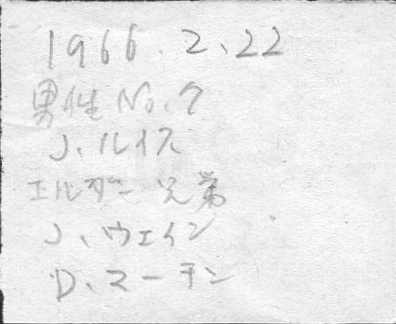 1966.2.22
男性No.7
J、ルイス
エルダー兄弟
J、ウェイン
D、マーチン